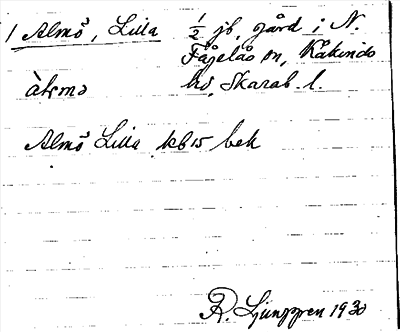 1 Almö, Lilla ½ jb, gård i N.
Fågelås sn, Kåkinds
hd, Skarab. l.
àlmö
Almö Lilla kb15 bek
R. Ljunggren 1930